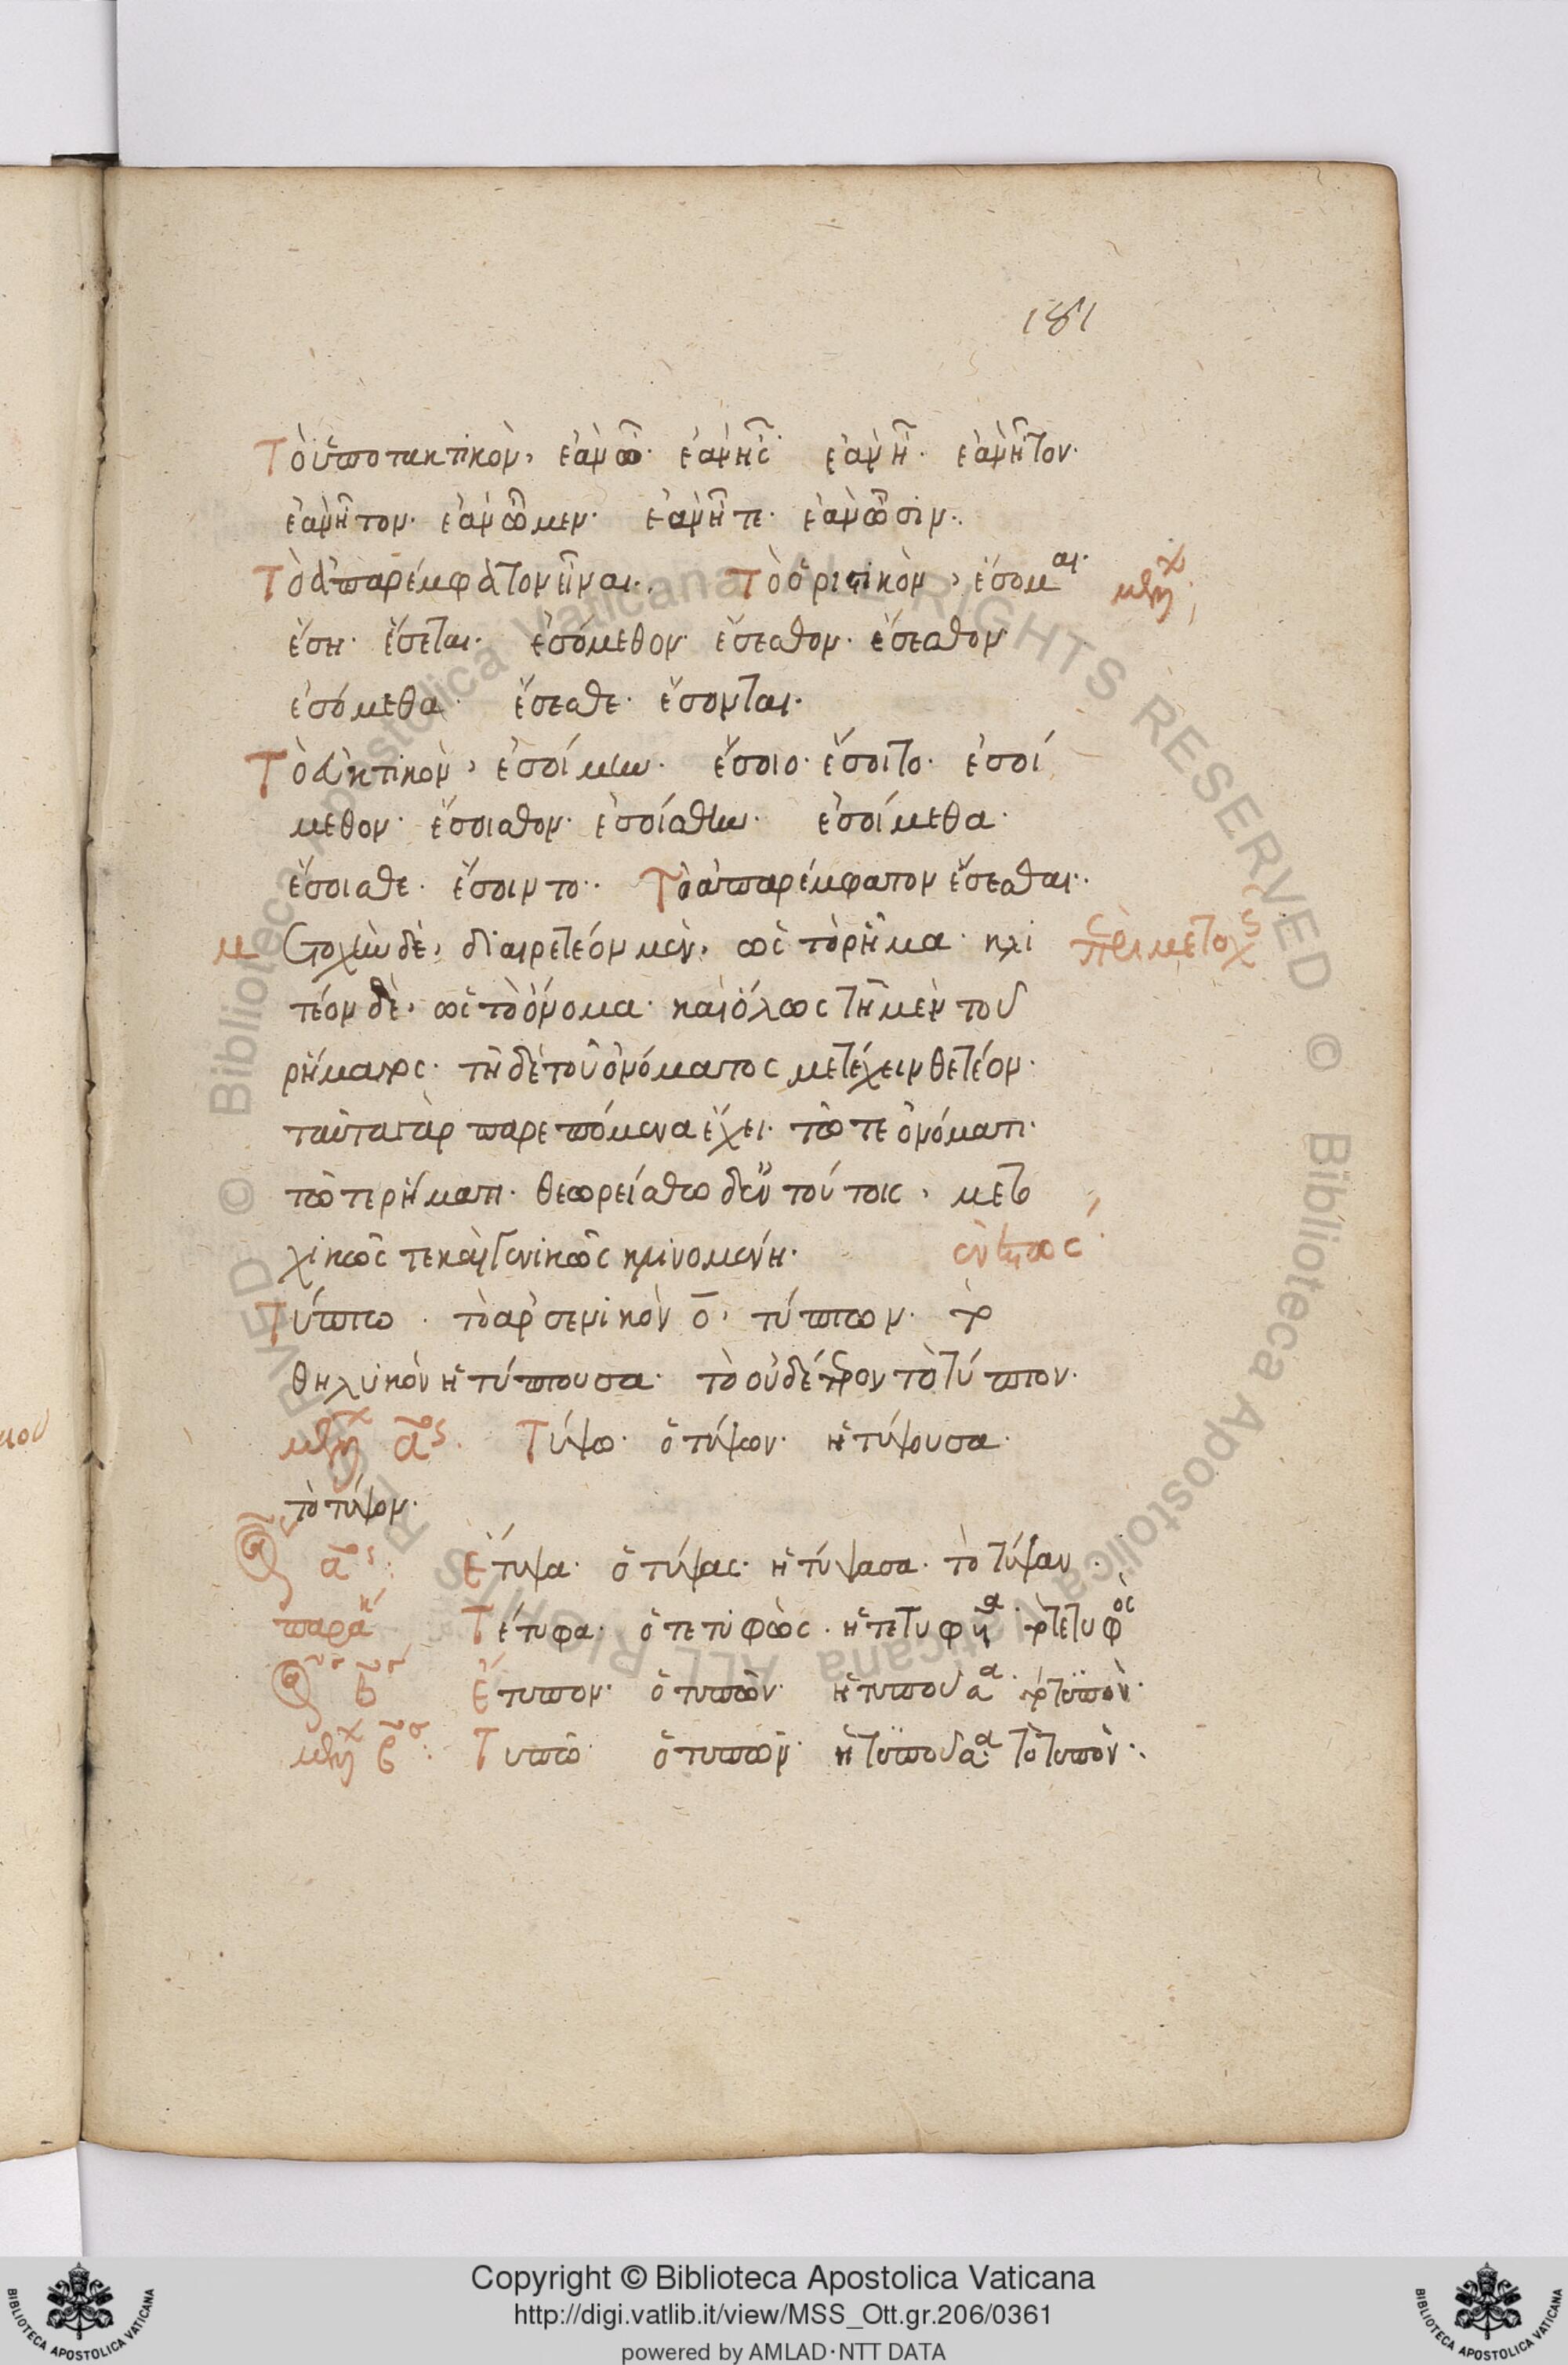 181
Τὸ ὑποτακτικὸν, ἐὰν ὦ· ἐὰν ῇς ἐὰν ῇ· ἐὰν ἦτον·
ἐὰν ἦτον· ἐὰν ὦμεν· ἐὰν ἦτε· ἐὰν ὦσιν·
Τὸ ἀπαρέμφατον εἶναι· Τὸ ὁριστικὸν, ἔσομαι· μελλ
ἔση· ἔσεται· ἐσόμεθον· ἔσεσθον· ἔσεσθον
ἐσόμεθα· ἔσεσθε· ἔσονται·
Τὸ εὐκτικὸν, ἐσοίμην· ἔσοιο· ἔσοιτο· ἐσοί
μεθον· ἔσοισθον· ἐσοίσθην· ἐσοίμεθα·
ἔσοισθε· ἔσοιντο· Τὸ ἀπαρέμφατον ἔσεσθαι·
Μ ετοχὴν δὲ, διαιρετέον μὲν, ὡς τὸ ῥῆμα· κλι περὶ μετοχς
τέον δὲ, ὡς τὸ ὄνομα· καὶ ὅλως πῆ μὲν τοῦ
ῥήματος· πῆ δὲ τοῦ ὀνόματος μετέχειν θετέον·
ταῦτα γὰρ παρεπόμενα ἔχει· τῶ τε ὀνόματι·
τῶ τε ῥήματι· θεωρείσθω δ' ἐν τούτοις, μετο
χικῶς τε καὶ γενικῶς κλινομένη· ἐνεστὼς
Τύπτω· τὸ ἀρσενικὸν ὁ, τύπτων· τὸ
θηλυκὸν ἡ τύπτουσα· τὸ οὐδέτερον τὸ τύπτον·
μελλ αος· Τύψω· ὁ τύψων· ἡ τύψουσα·
τὸ τύψον·
αος: Ἔτυψα· ὁ τύψας· ἡ τύψασα· τὸ τύψαν·
παρακ Τέτυφα· ὁ τετυφὼς· ἡ τετυφυῖα· τὸ τετυφὸς
β Ἔτυπον· ὁ τυπῶν· ἡ τυποῦσα· τὸ τυπὸν·
μελλ βος: Τυπῶ· ὁ τυπῶν· ἡ τυποῦσα· τὸ τυπὸν·
Copyright © Biblioteca Apostolica Vaticana
http://digi.vatlib.it/view/MSS_Ott.gr.206/0361
powered by AMLAD·NTT DATA